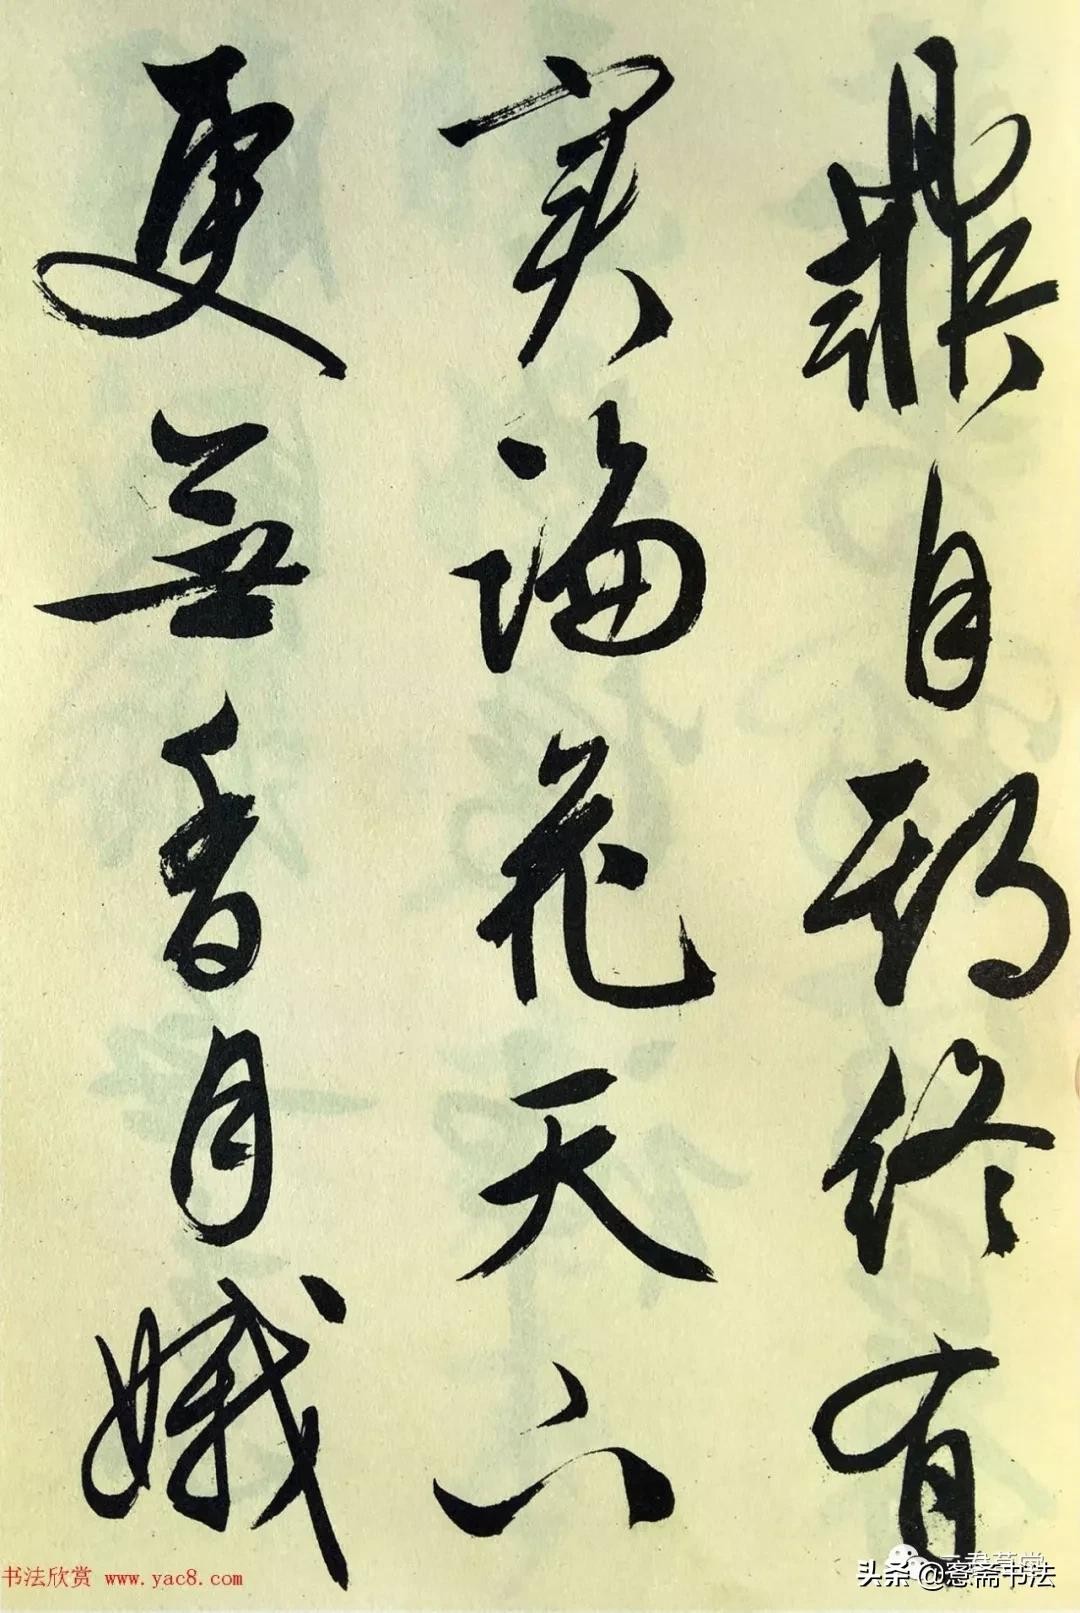 鼎自期終有
实論花天下
更無香月娥
书法欣赏 www.yac8.com
头条 @悫斋书法